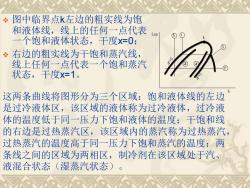 图中临界点k左边的粗实线为饱
和液体线，线上的任何一点代表
一个饱和液体状态，干度x=0；
右边的粗实线为干饱和蒸汽线，
线上任何一点代表一个饱和蒸汽
状态，干度x=1。
这两条曲线将图形分为三个区域：饱和液体线的左边
是过冷液体区，该区域的液体称为过冷液体，过冷液
体的温度低于同一压力下饱和液体的温度；干饱和线
的右边是过热蒸汽区，该区域内的蒸汽称为过热蒸汽，
过热蒸汽的温度高于同一压力下饱和蒸汽的温度；两
条线之间的区域为两相区，制冷剂在该区域处于汽、
液混合状态（湿蒸汽状态）。